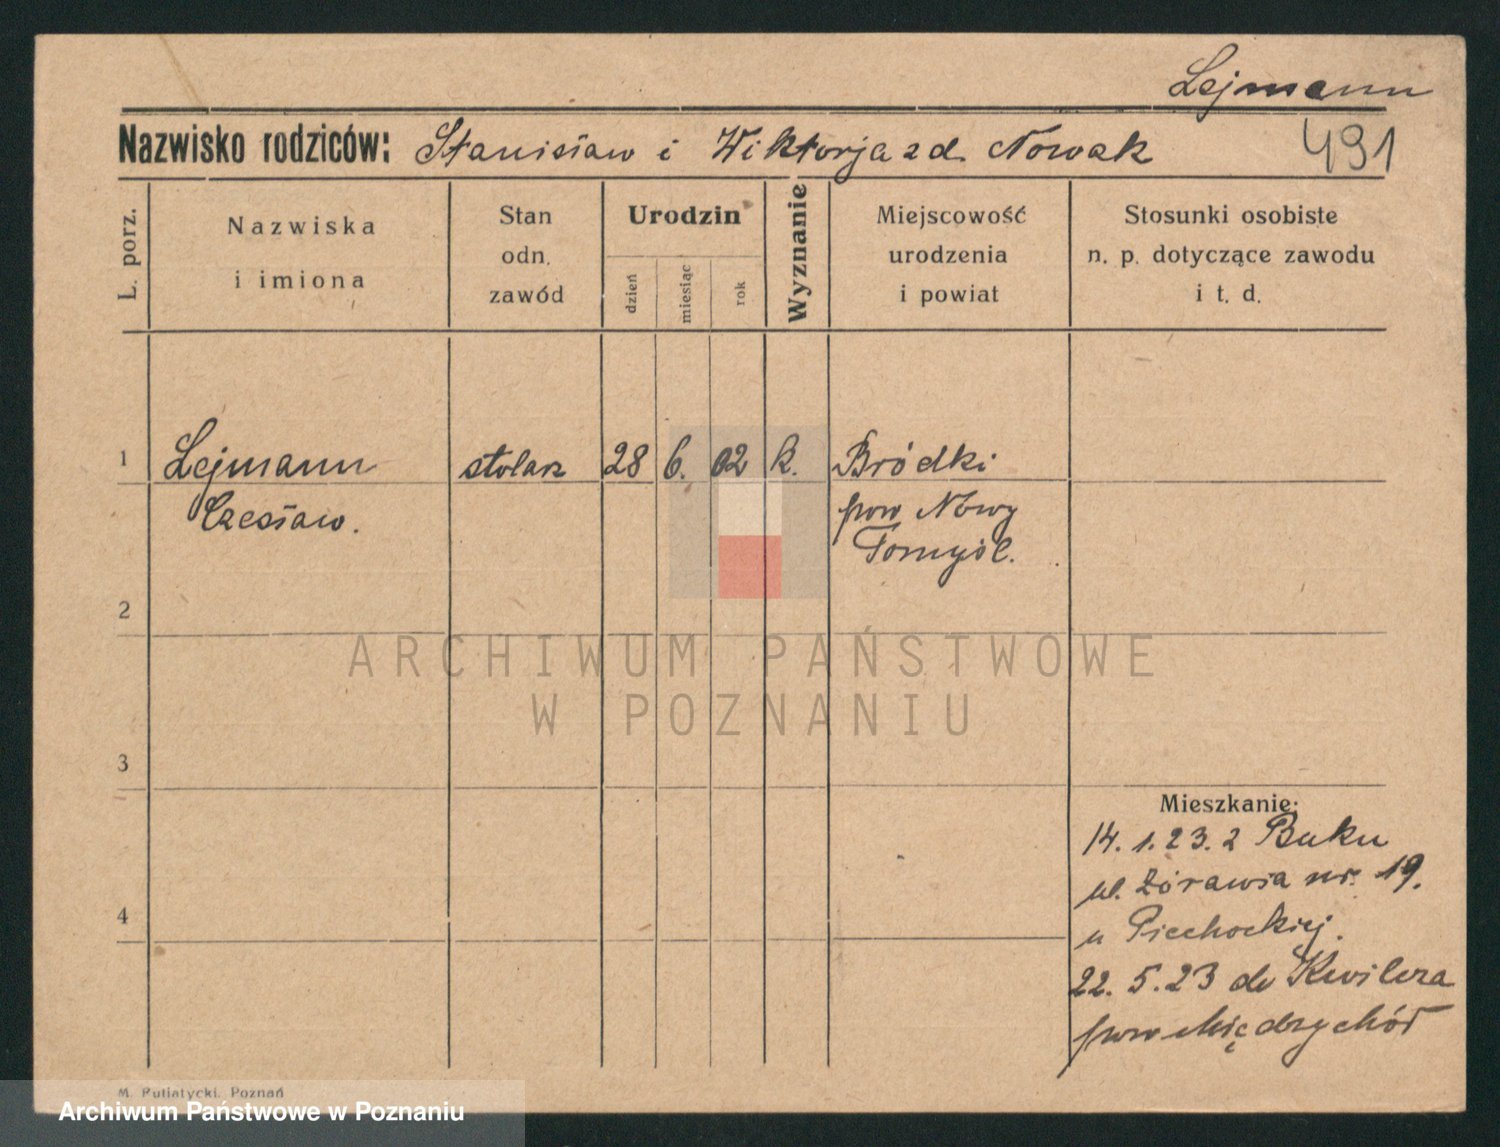 Lejmann
Nazwisko rodziców: Stanisław i Wiktorja z d. Nowak 491
L. porz.
Nazwiska
i imiona
Stan
odn.
zawód
Urodzin
dzień
miesiąc
rok
Wyznanie
Miejscowość
urodzenia
i powiat
Stosunki osobiste
n. p. dotyczące zawodu
i t. d.
1 Lejmann stolarz 28 6. 02 k. Bródki
Czesław. pow Nowy
Tomyśl.
2
3
4
Mieszkanie:
14. 1. 23. z Buku
ul. Żórawia nr. 19.
u Piechockiej.
22. 5. 23 do Kwilcza
pow Międzychód
M. Putiatycki, Poznań
ARCHIWUM PAŃSTWOWE
W POZNANIU
Archiwum Państwowe w Poznaniu